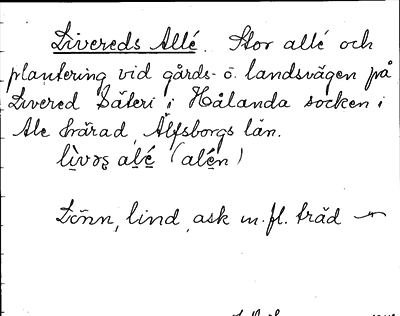 Livereds Allé. Stor allé och
plantering vid gårds- o. landsvägen på
Livered Säteri i Hålanda socken i
Ale härad, Älfsborgs län.
lìvəʂ alé (alén)
Lönn, lind, ask m.fl. träd